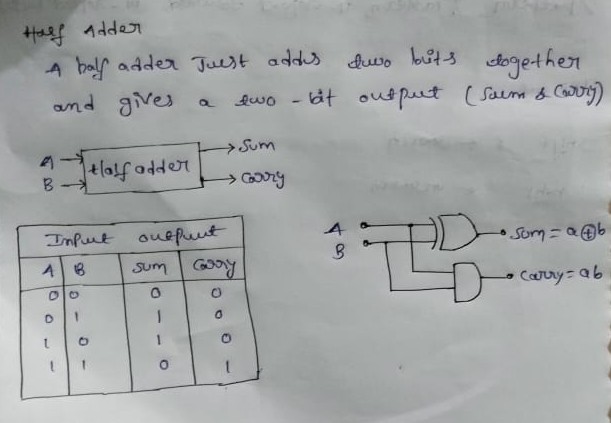 Half Adder
A half adder Just adds two bits together
and gives a two-bit output (Sum & Carry)
A
B
Half adder
Sum
Carry
Input output
A B Sum Carry
0 0 0 0
0 1 1 0
1 0 1 0
1 1 0 1
A
B
Sum = a⊕b
Carry = ab